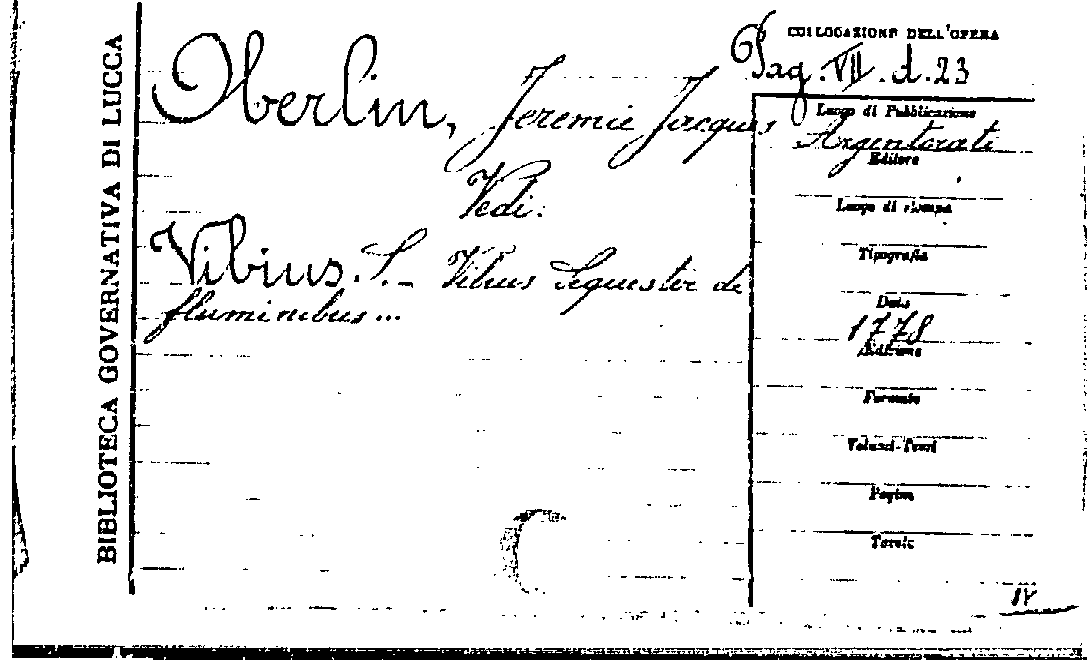 BIBLIOTECA GOVERNATIVA DI LUCCA
Oberlin, Jeremie Jacques
Vedi:
Vibius. S. - Vibius Sequester de
fluminibus...
COLLOCAZIONE DELL'OPERA
Pag. VII. d. 23
Luogo di Pubblicazione
Argentorati
Editore
Luogo di stampa
Tipografia
Data
1778
Edizione
Formato
Volumi-Tomi
Pagine
Tavole